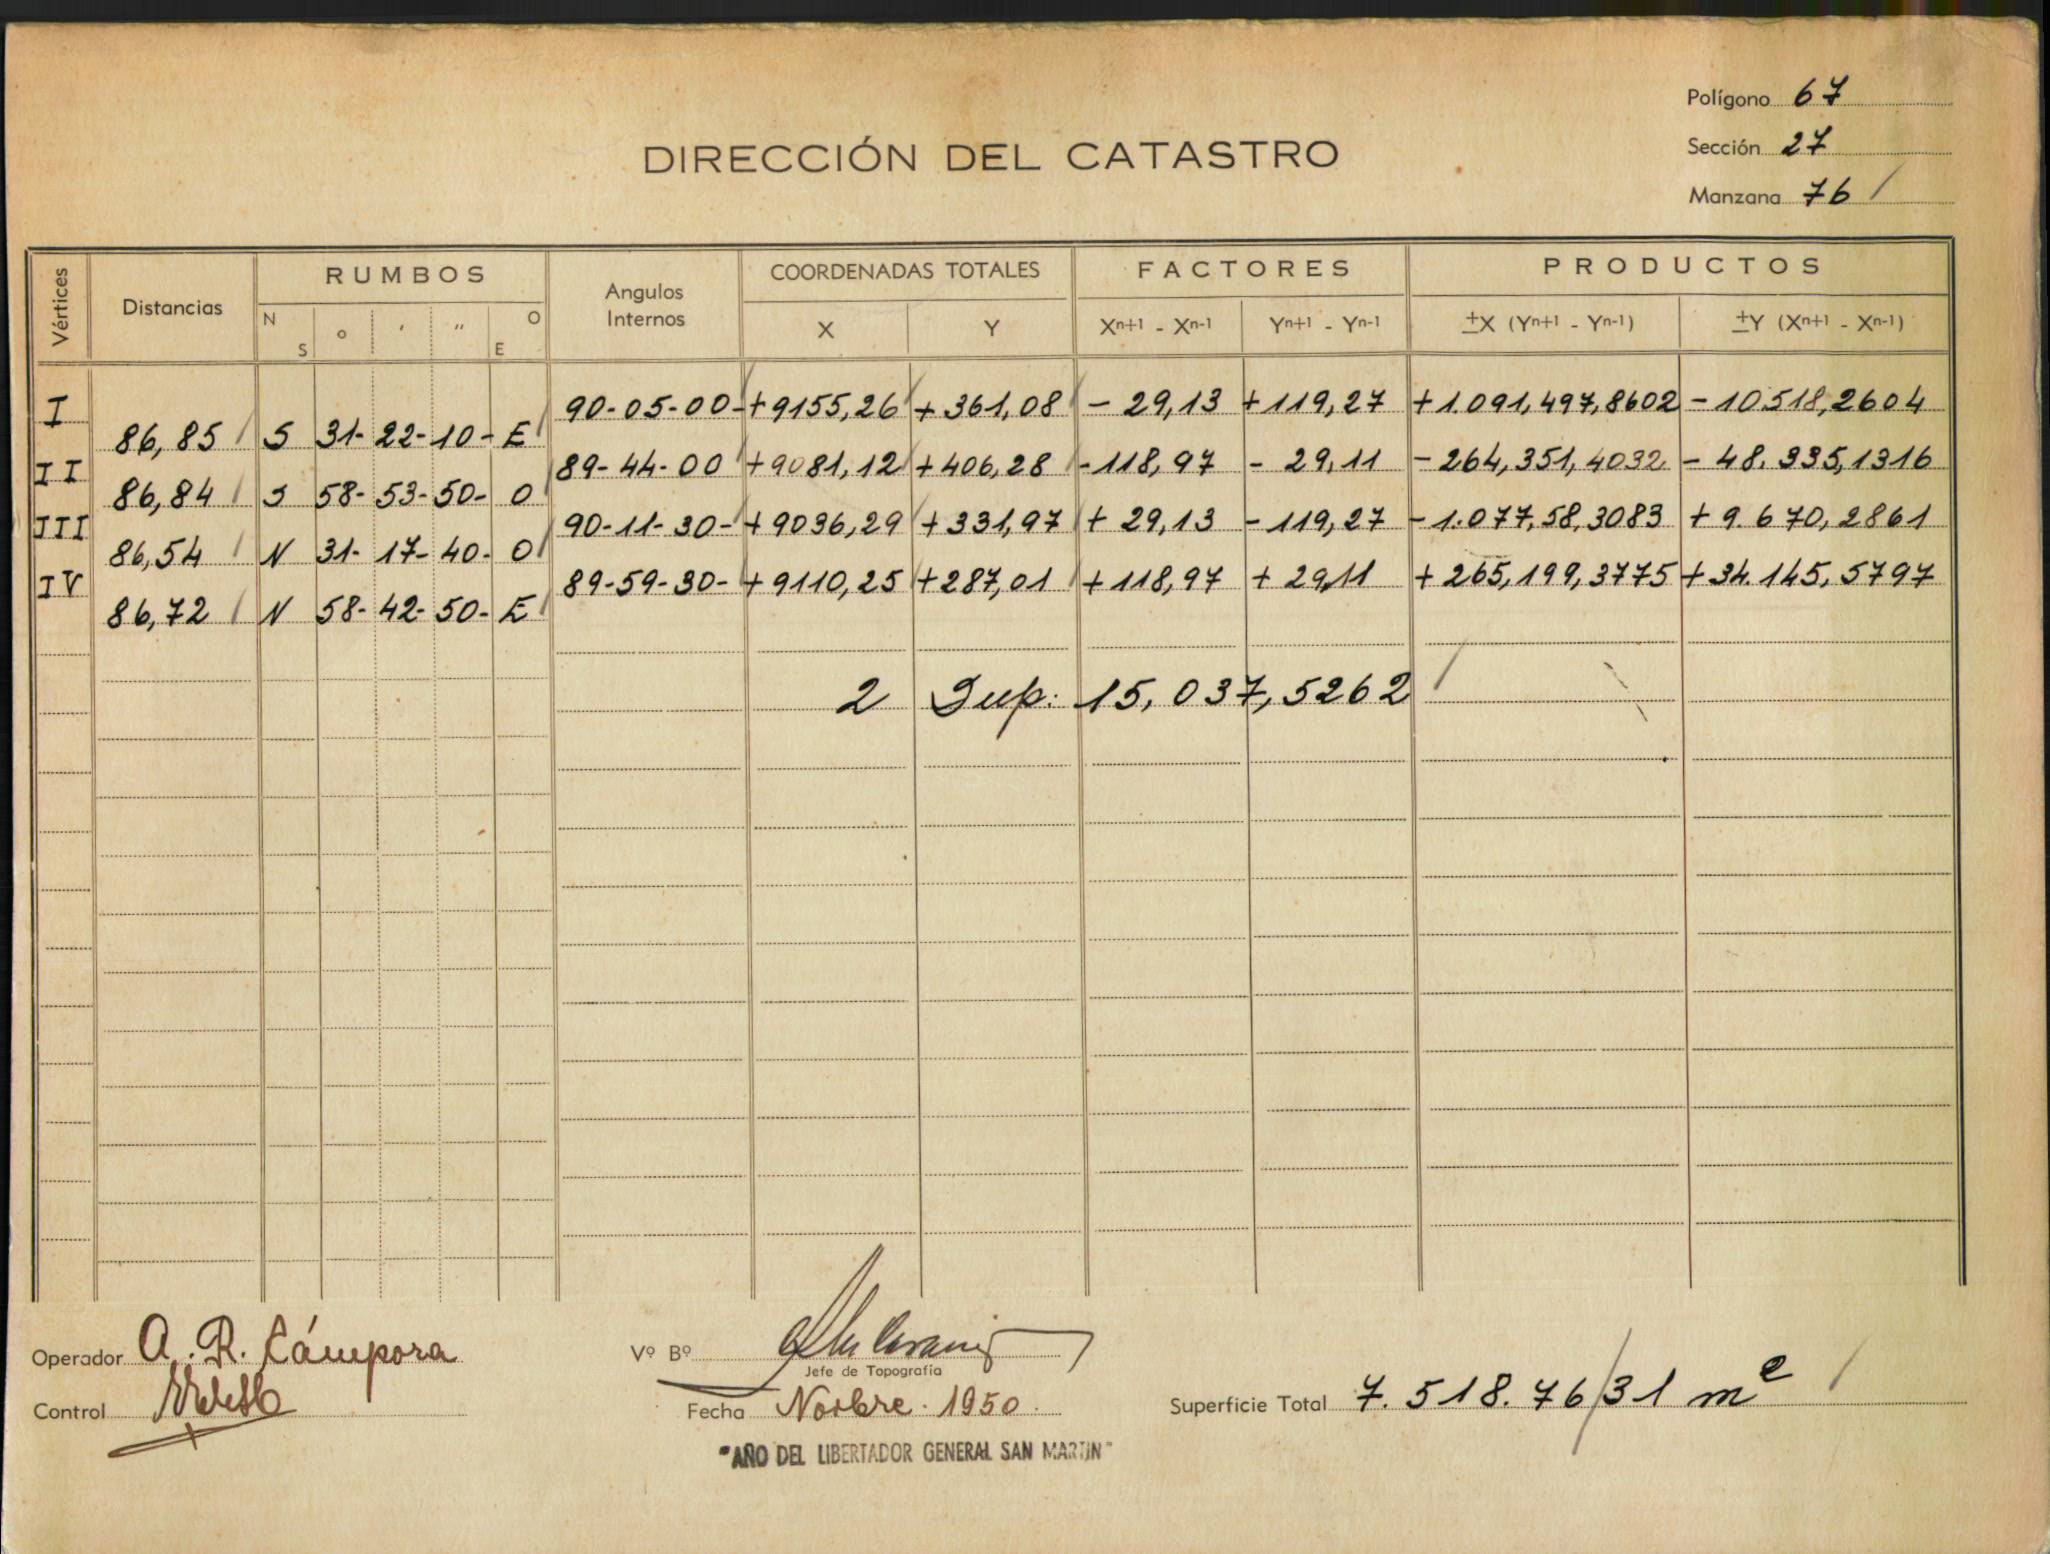 Polígono 67
Sección 27
Manzana 76
DIRECCIÓN DEL CATASTRO
Vértices Distancias RUMBOS Angulos Internos COORDENADAS TOTALES FACTORES PRODUCTOS
N S ° ' " O E X Y Xn+1 - Xn-1 Yn+1 - Yn-1 ±X (Yn+1 - Yn-1) ±Y (Xn+1 - Xn-1)
I 90-05-00- +9155,26 +361,08 - 29,13 +119,27 +1.091,497,8602 -10.518,2604
86,85 S 31- 22- 10- E
II 89-44-00 +9081,12 +406,28 -118,97 - 29,11 -264,351,4032 - 48.335,1316
86,84 S 58- 53- 50- O
III 90-11-30- +9036,29 +331,97 + 29,13 -119,27 -1.077,58,3083 +9.670,2861
86,54 N 31- 17- 40- O
IV 89-59-30- +9110,25 +287,01 +118,97 + 29,11 +265,199,3775 +34.145,5797
86,72 N 58- 42- 50- E
2 Sup: 15,037,5262
Operador A. R. Cámpora
Vº Bº
Jefe de Topografía
Control
Fecha Novbre. 1950.
Superficie Total 7.518.76/31 m2
"AÑO DEL LIBERTADOR GENERAL SAN MARTIN"